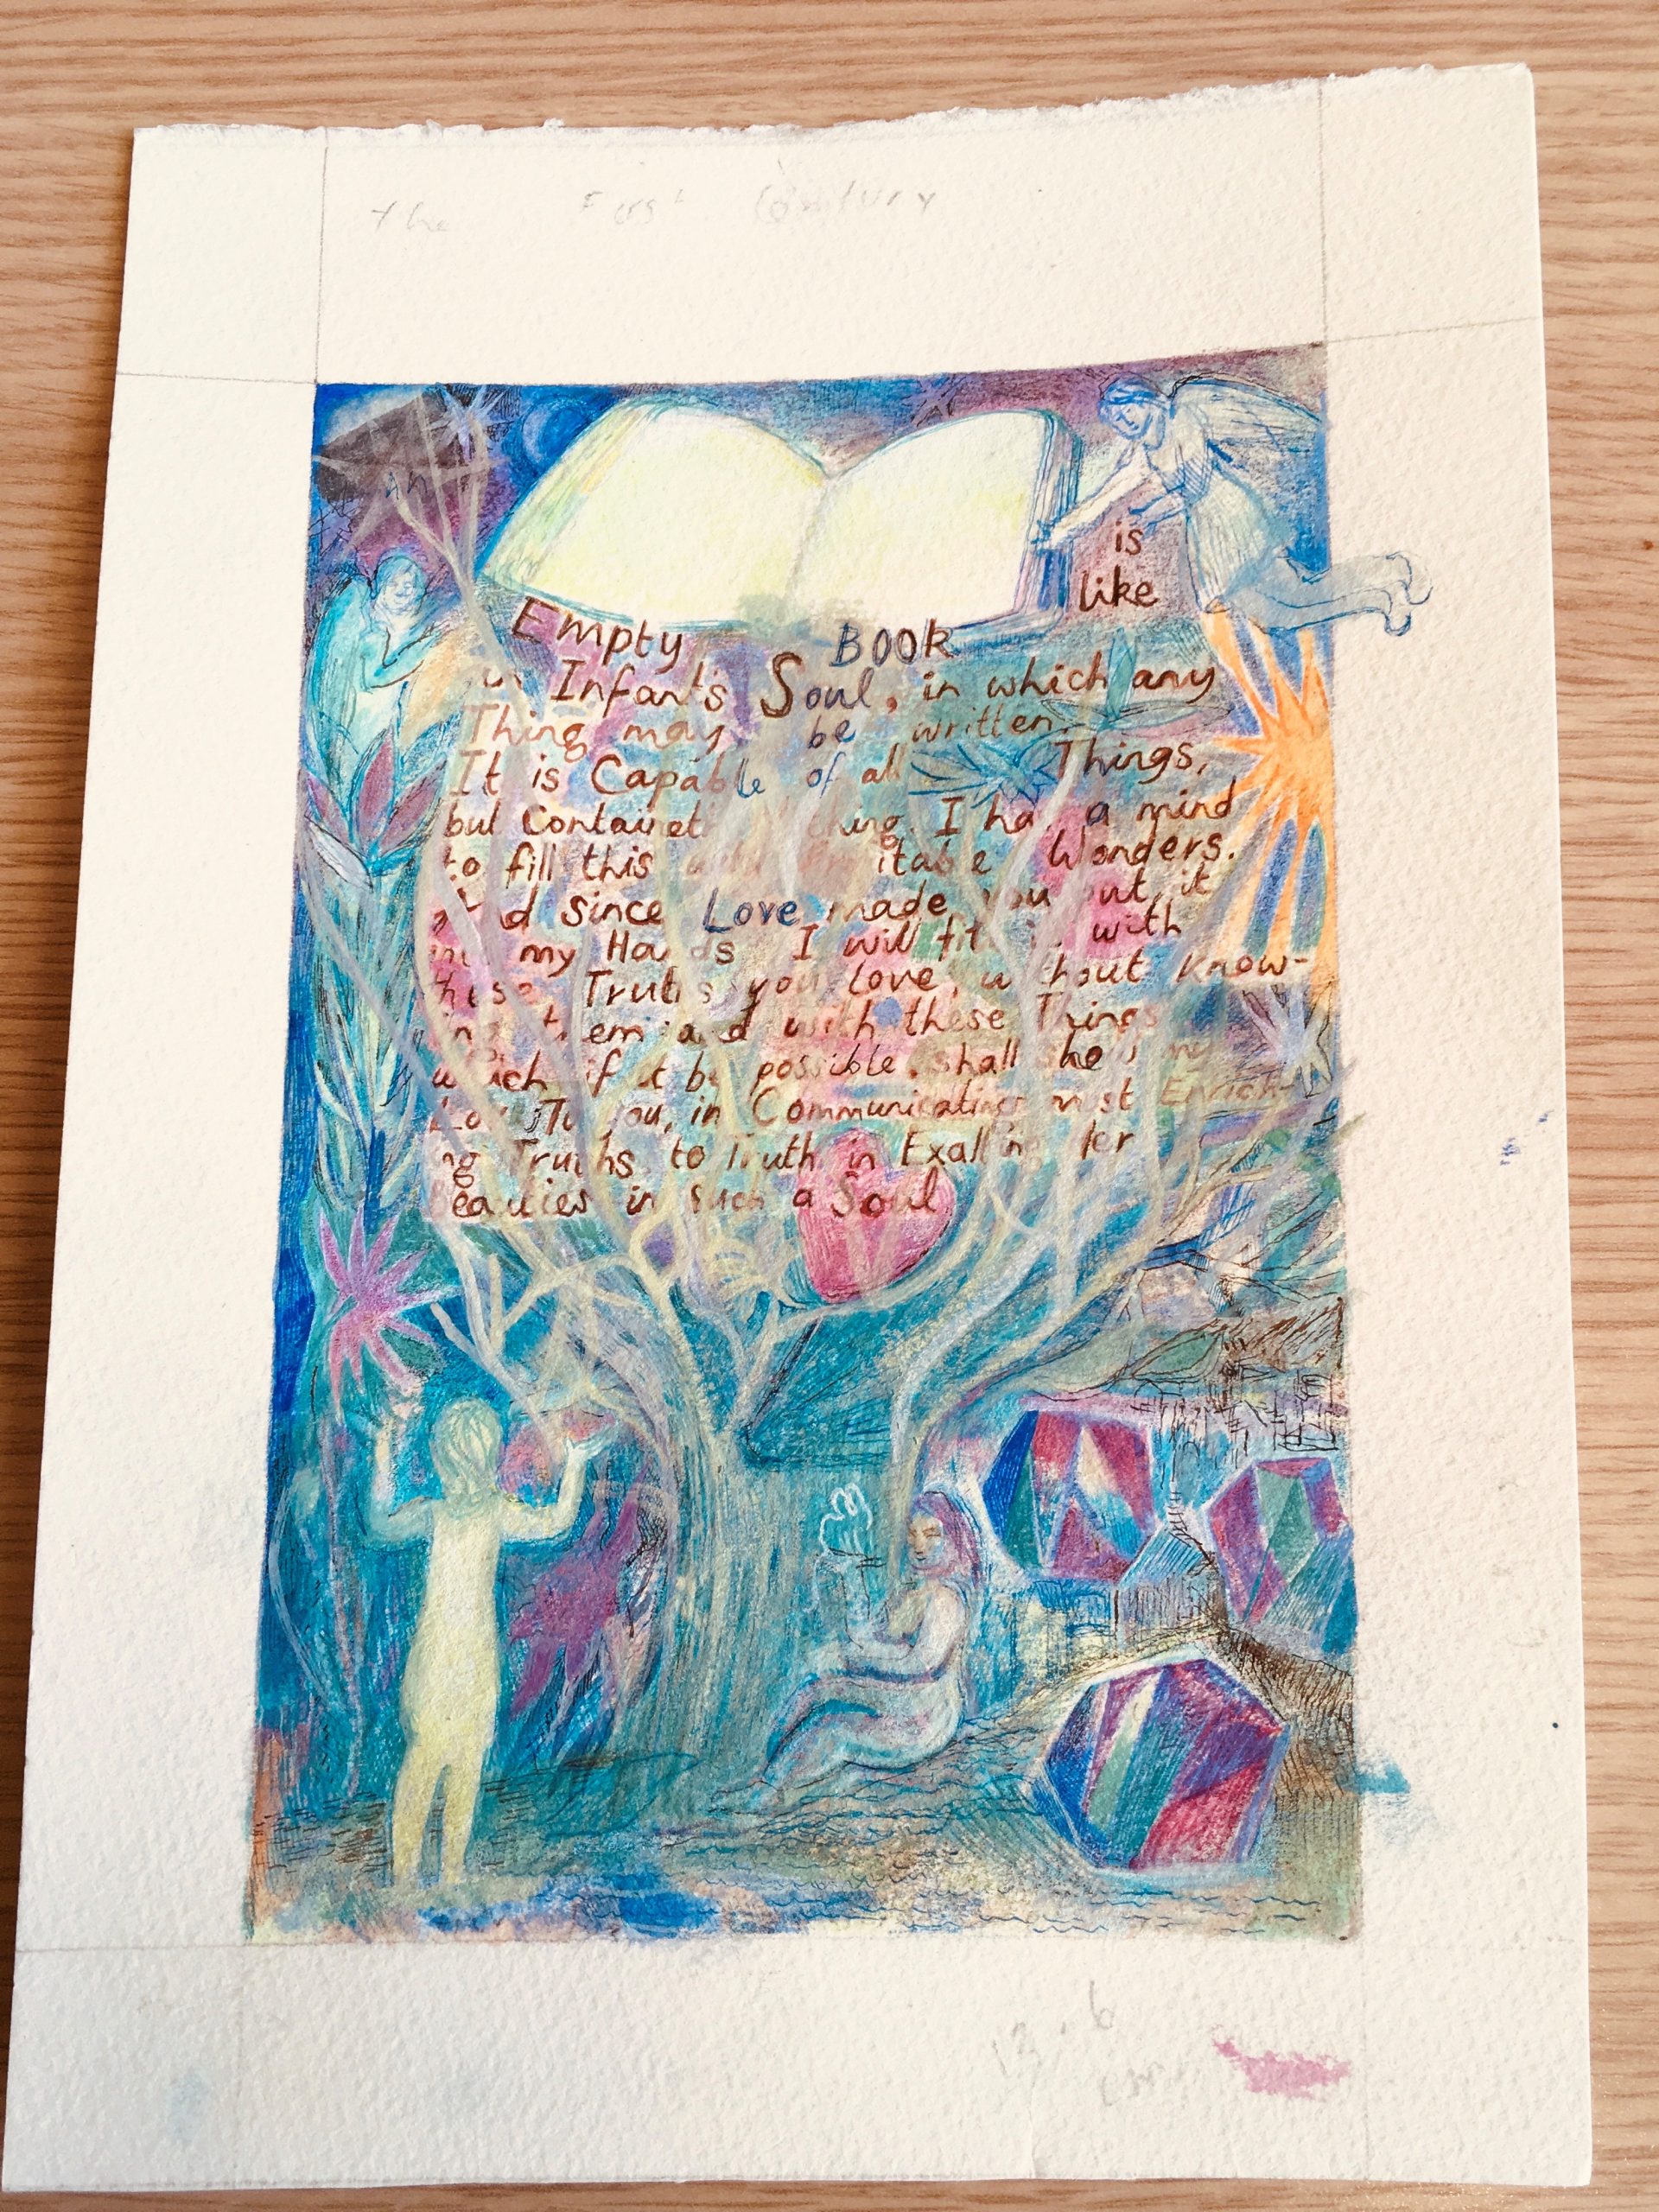 The First Century
An
is
like
Empty BOOK
an Infant's Soul, in which any
Thing may be written.
It is Capable of all Things,
but Containeth Nothing. I hav a mind
to fill this itable Wonders.
And since Love made you put it
into my Hands I will fill it with
those Truths you Love, without Know-
ing them: and with these Things
which if it be possible, shall shew my
Lov To you, in Communicating most Enrich-
ing Truths to Truth in Exalting Her
Beauties in such a Soul
13.6
cm